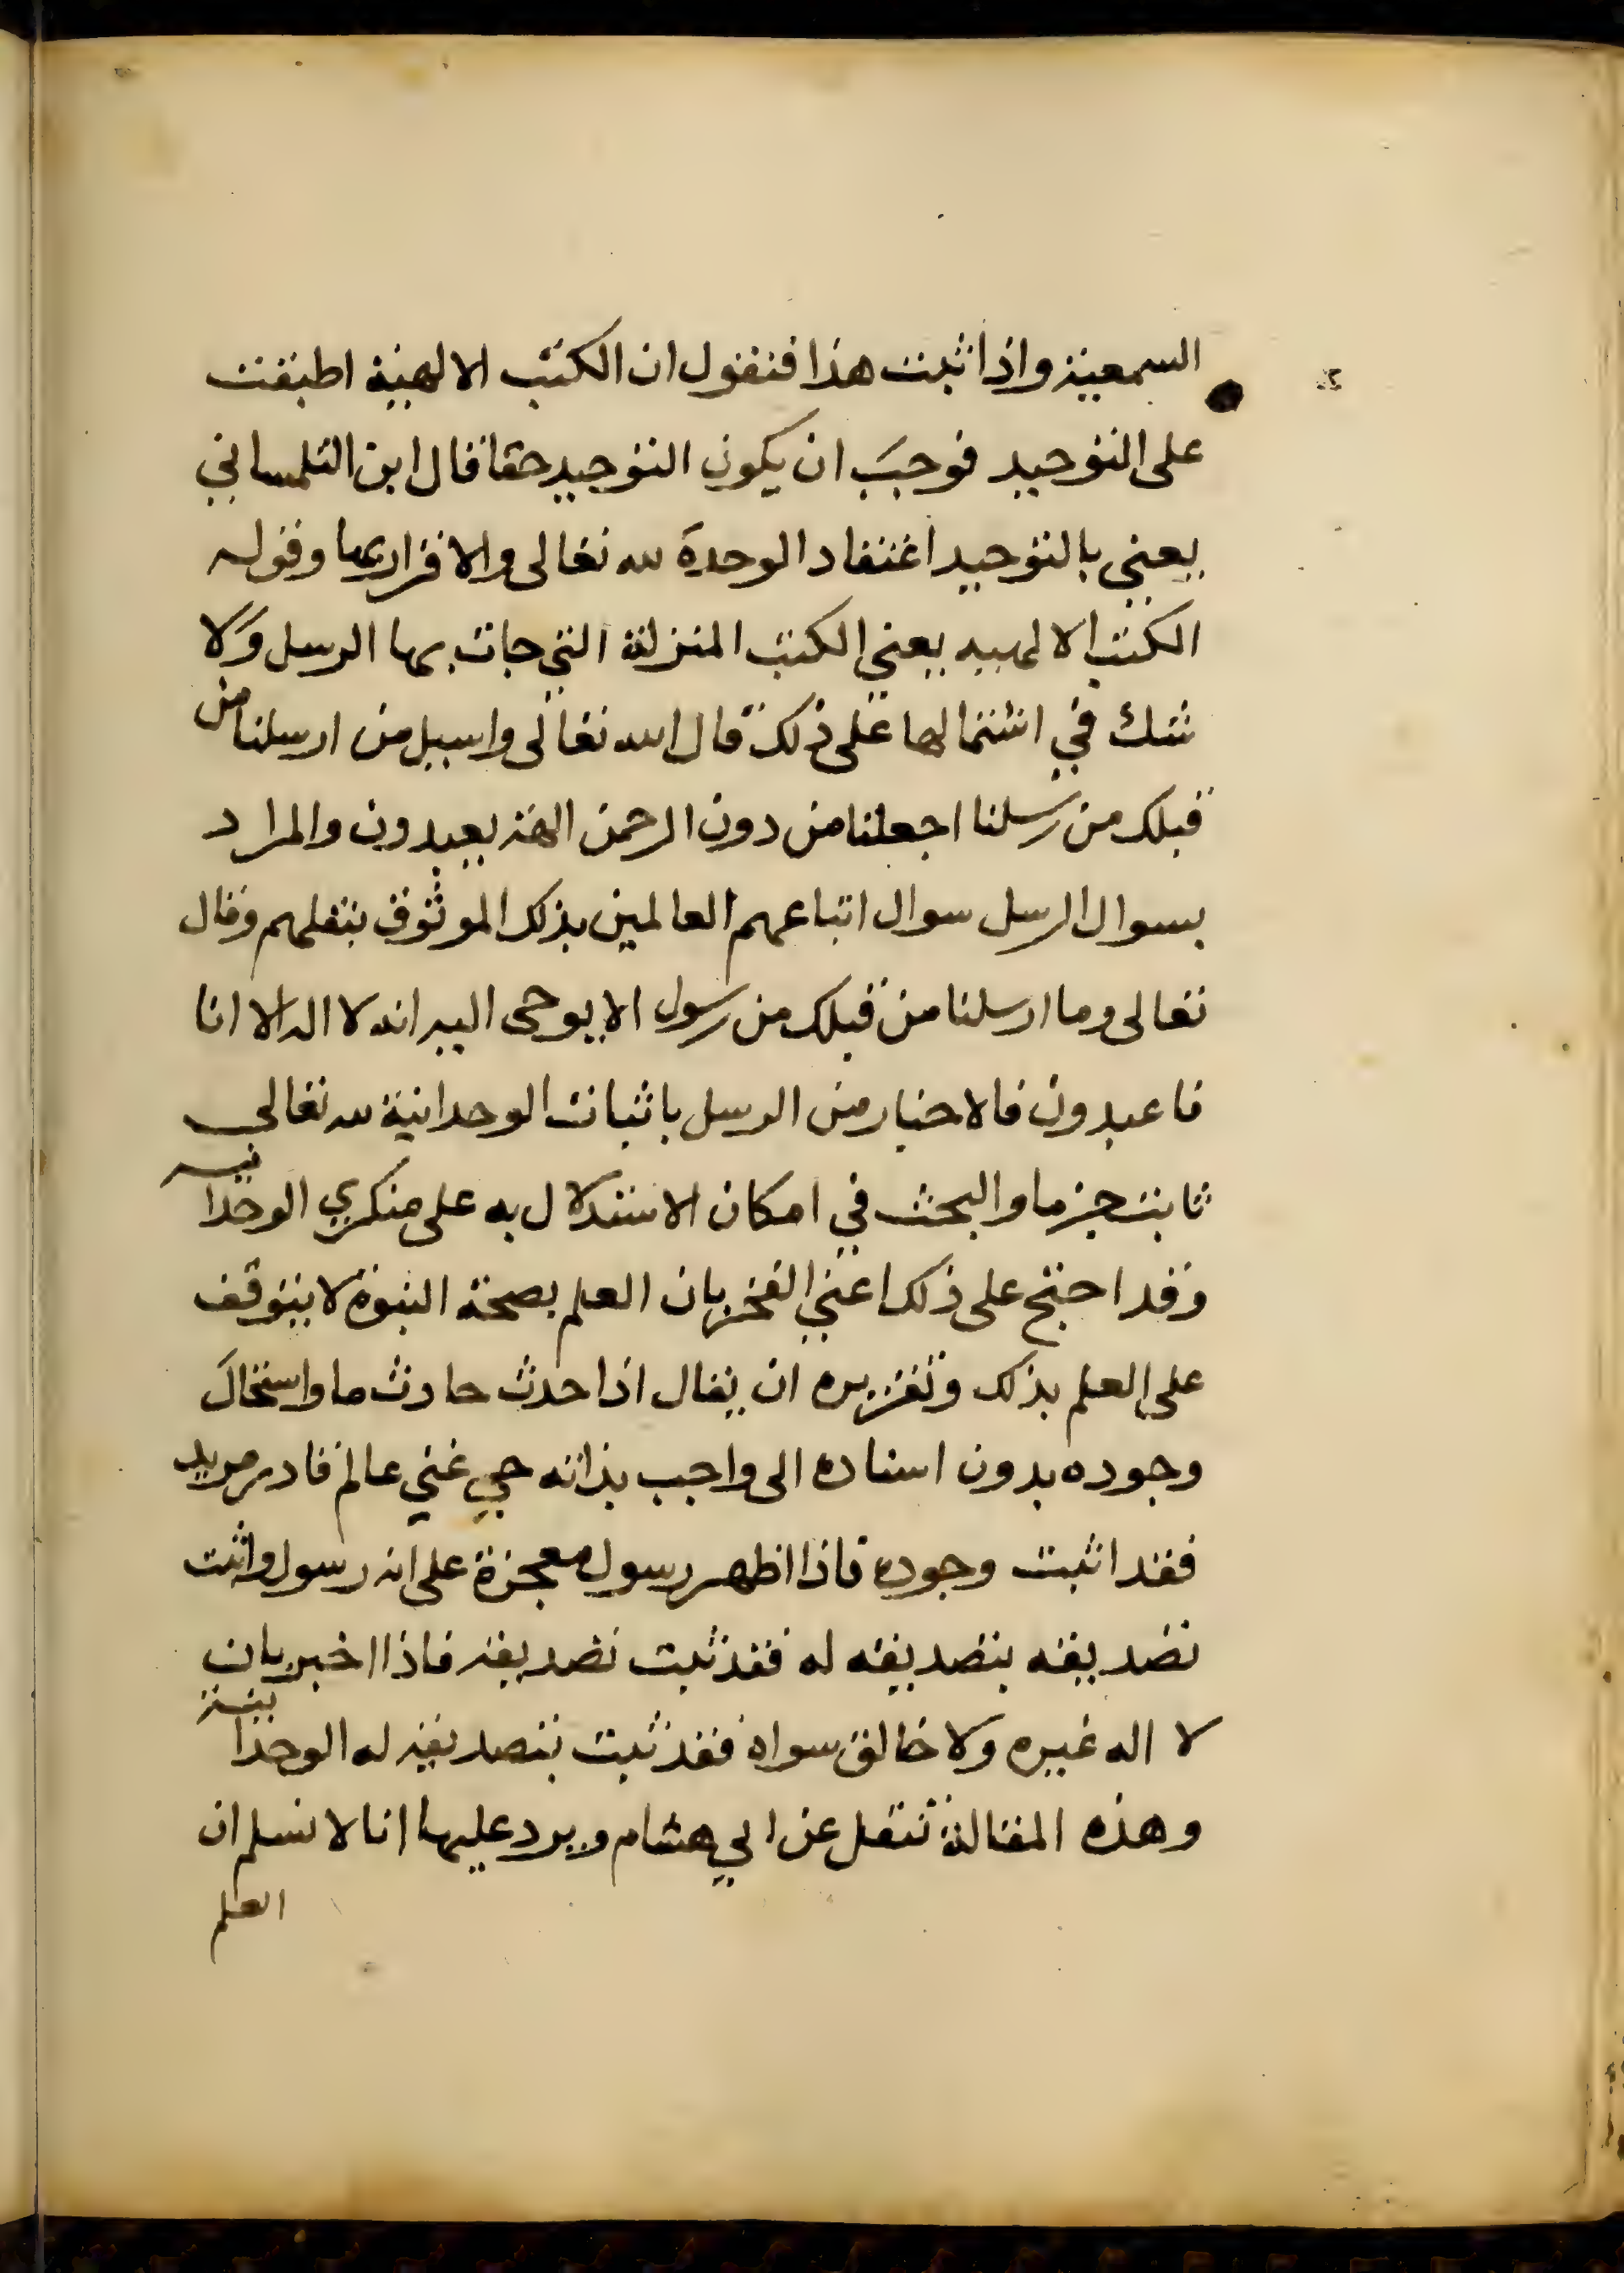 السمعية واذا ثبت هذا فنقول ان الكتب الالهية اطبقت
على التوحيد فوجب ان يكون التوحيد حقا قال ابن التلمساني
يعني بالتوحيد اعتقاد الوحدة لله تعالى والاقرار بها وقوله
الكتب الالهيه يعني الكتب المنزلة التي جات بها الرسل ولا
شك في اشتمالها على ذلك قال الله تعالى واسيل من ارسلنا من
قبلك من رسلنا اجعلنا من دون الرحمن الهة يعبدون والمراد
بسوال الرسل سوال اتباعهم العالمين بذلك الموثوق بنقلهم وقال
تعالى وما ارسلنا من قبلك من رسول الا يوحى اليه انه لا اله الا انا
فاعبدون فالاخبار من الرسل باثبات الوحدانية لله تعالى
ثابت جزما والبحث في امكان الاستدلال به على منكري الوحدانية
وقد احتج على ذلك اعني الفخر بان العلم بصحة النبوة لا يتوقف
على العلم بذلك وتقريره ان يقال اذا حدث حادث ما واستحال
وجوده بدون استاده الى واجب بذاته حي غني عالم قادر مريد
فقد اثبت وجوده فاذا اظهر رسول معجزة على انه رسول واثبت
تصديقه بتصديقه له فقد ثبت تصديقه فاذا اخبر بان
لا اله غيره ولا خالق سواه فقد ثبت بتصديقه له الوحدانية
وهذه المقالة تنقل عن ابي هشام ويرد عليها انا لا نسلم ان
العلم